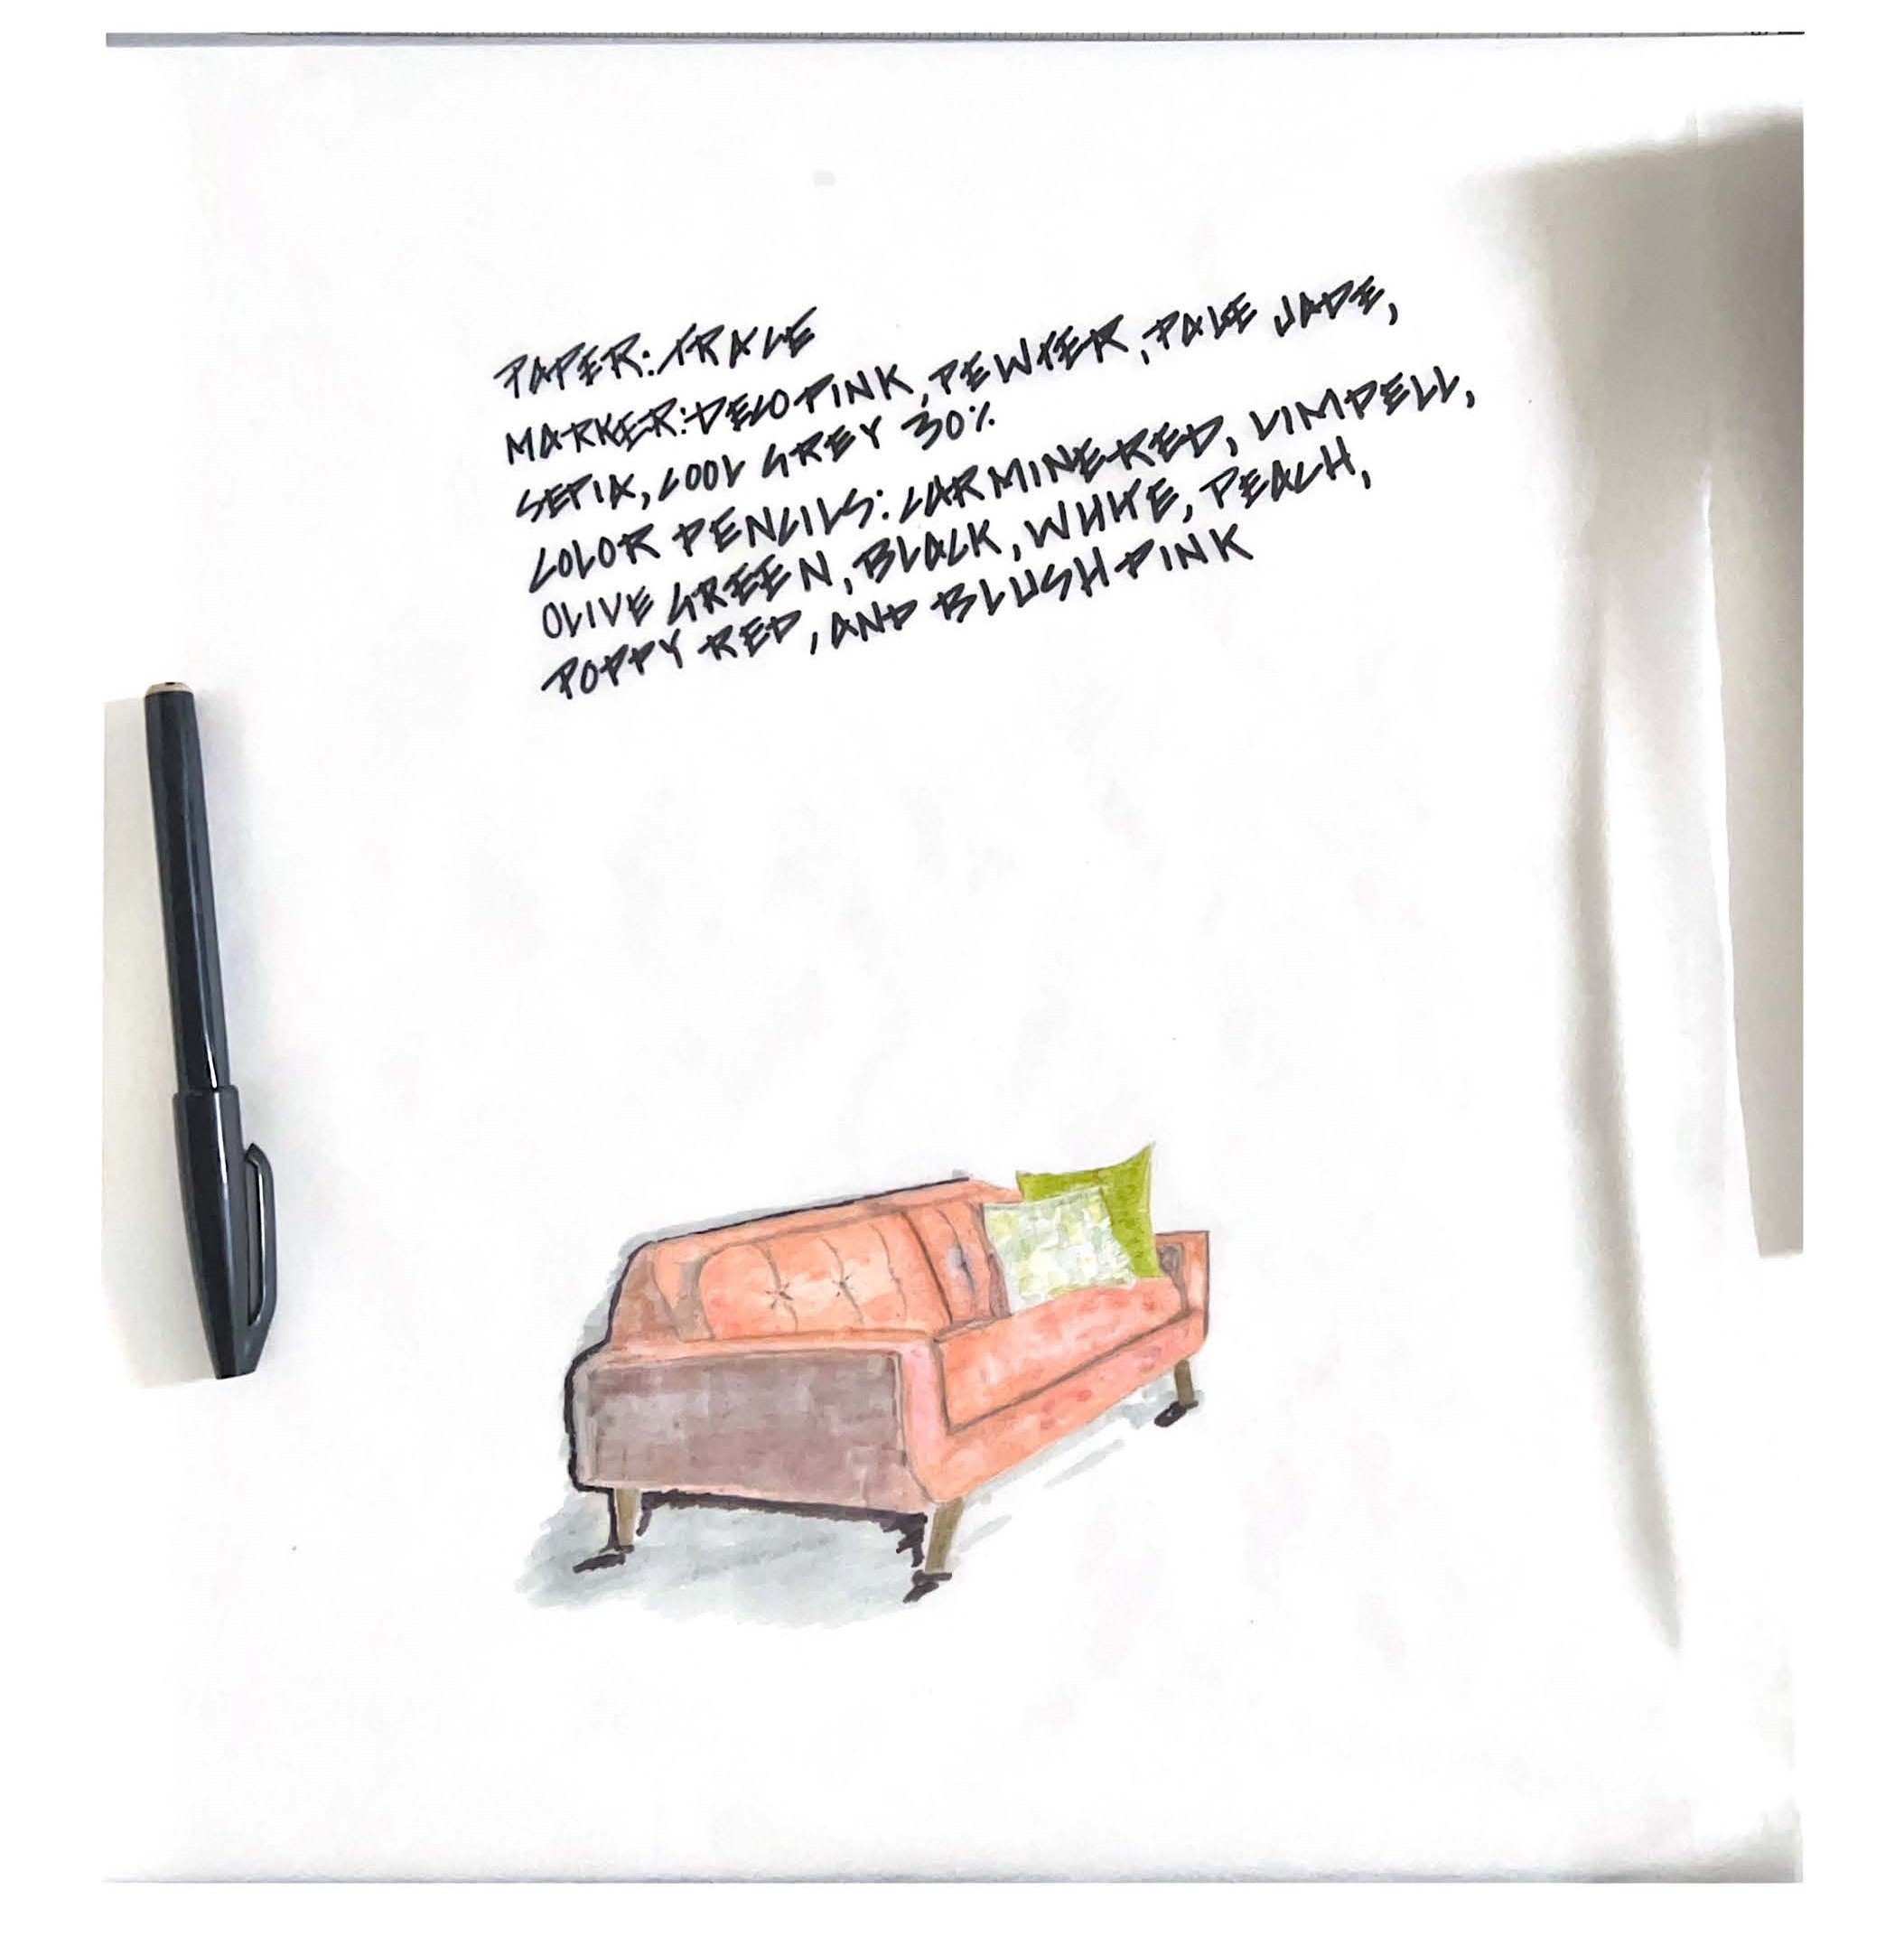 PAPER: TRACE
MARKER: DECO PINK, PEWTER, PALE JADE,
SEPIA, COOL GREY 30%
COLOR PENCILS: CARMINE RED, LIMPELL,
OLIVE GREEN, BLACK, WHITE, PEACH,
POPPY RED, AND BLUSH PINK